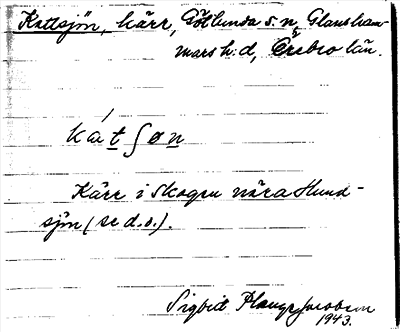 Kattsjön, kärr, Götlunda s:n, Glansham-
mars h:d, Örebro län.
kátʃøn
Kärr i skogen nära Hund-
sjön (se d.o.).
Sigurd
1943.